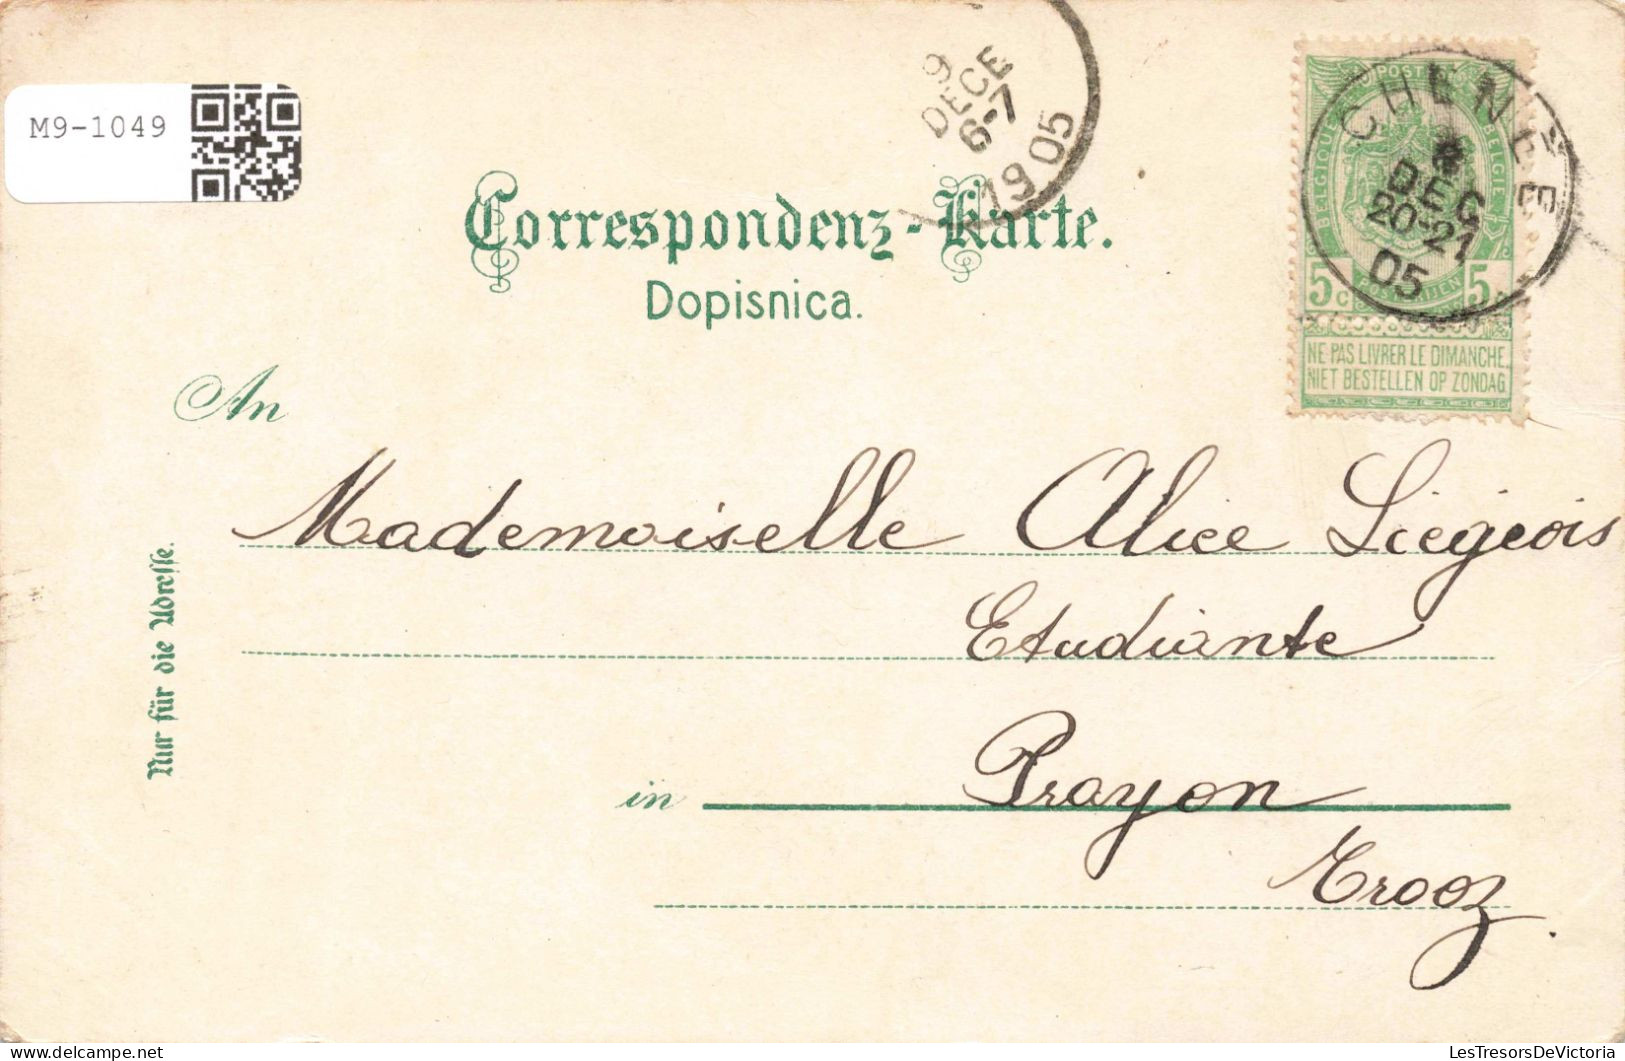 M9-1049
9
DECE
6-7
1905
Correspondenz-Karte.
Dopisnica.
POSTES
BELGIQUE
BELGIË
5c
5c
NE PAS LIVRER LE DIMANCHE
NIET BESTELLEN OP ZONDAG
CHENÉE
8
DEC
20-21
05
An
Mademoiselle Alice Liégeois
Etudiante
in Prayon
Trooz
Nur für die Adresse.
LesTresorsDeVictoria